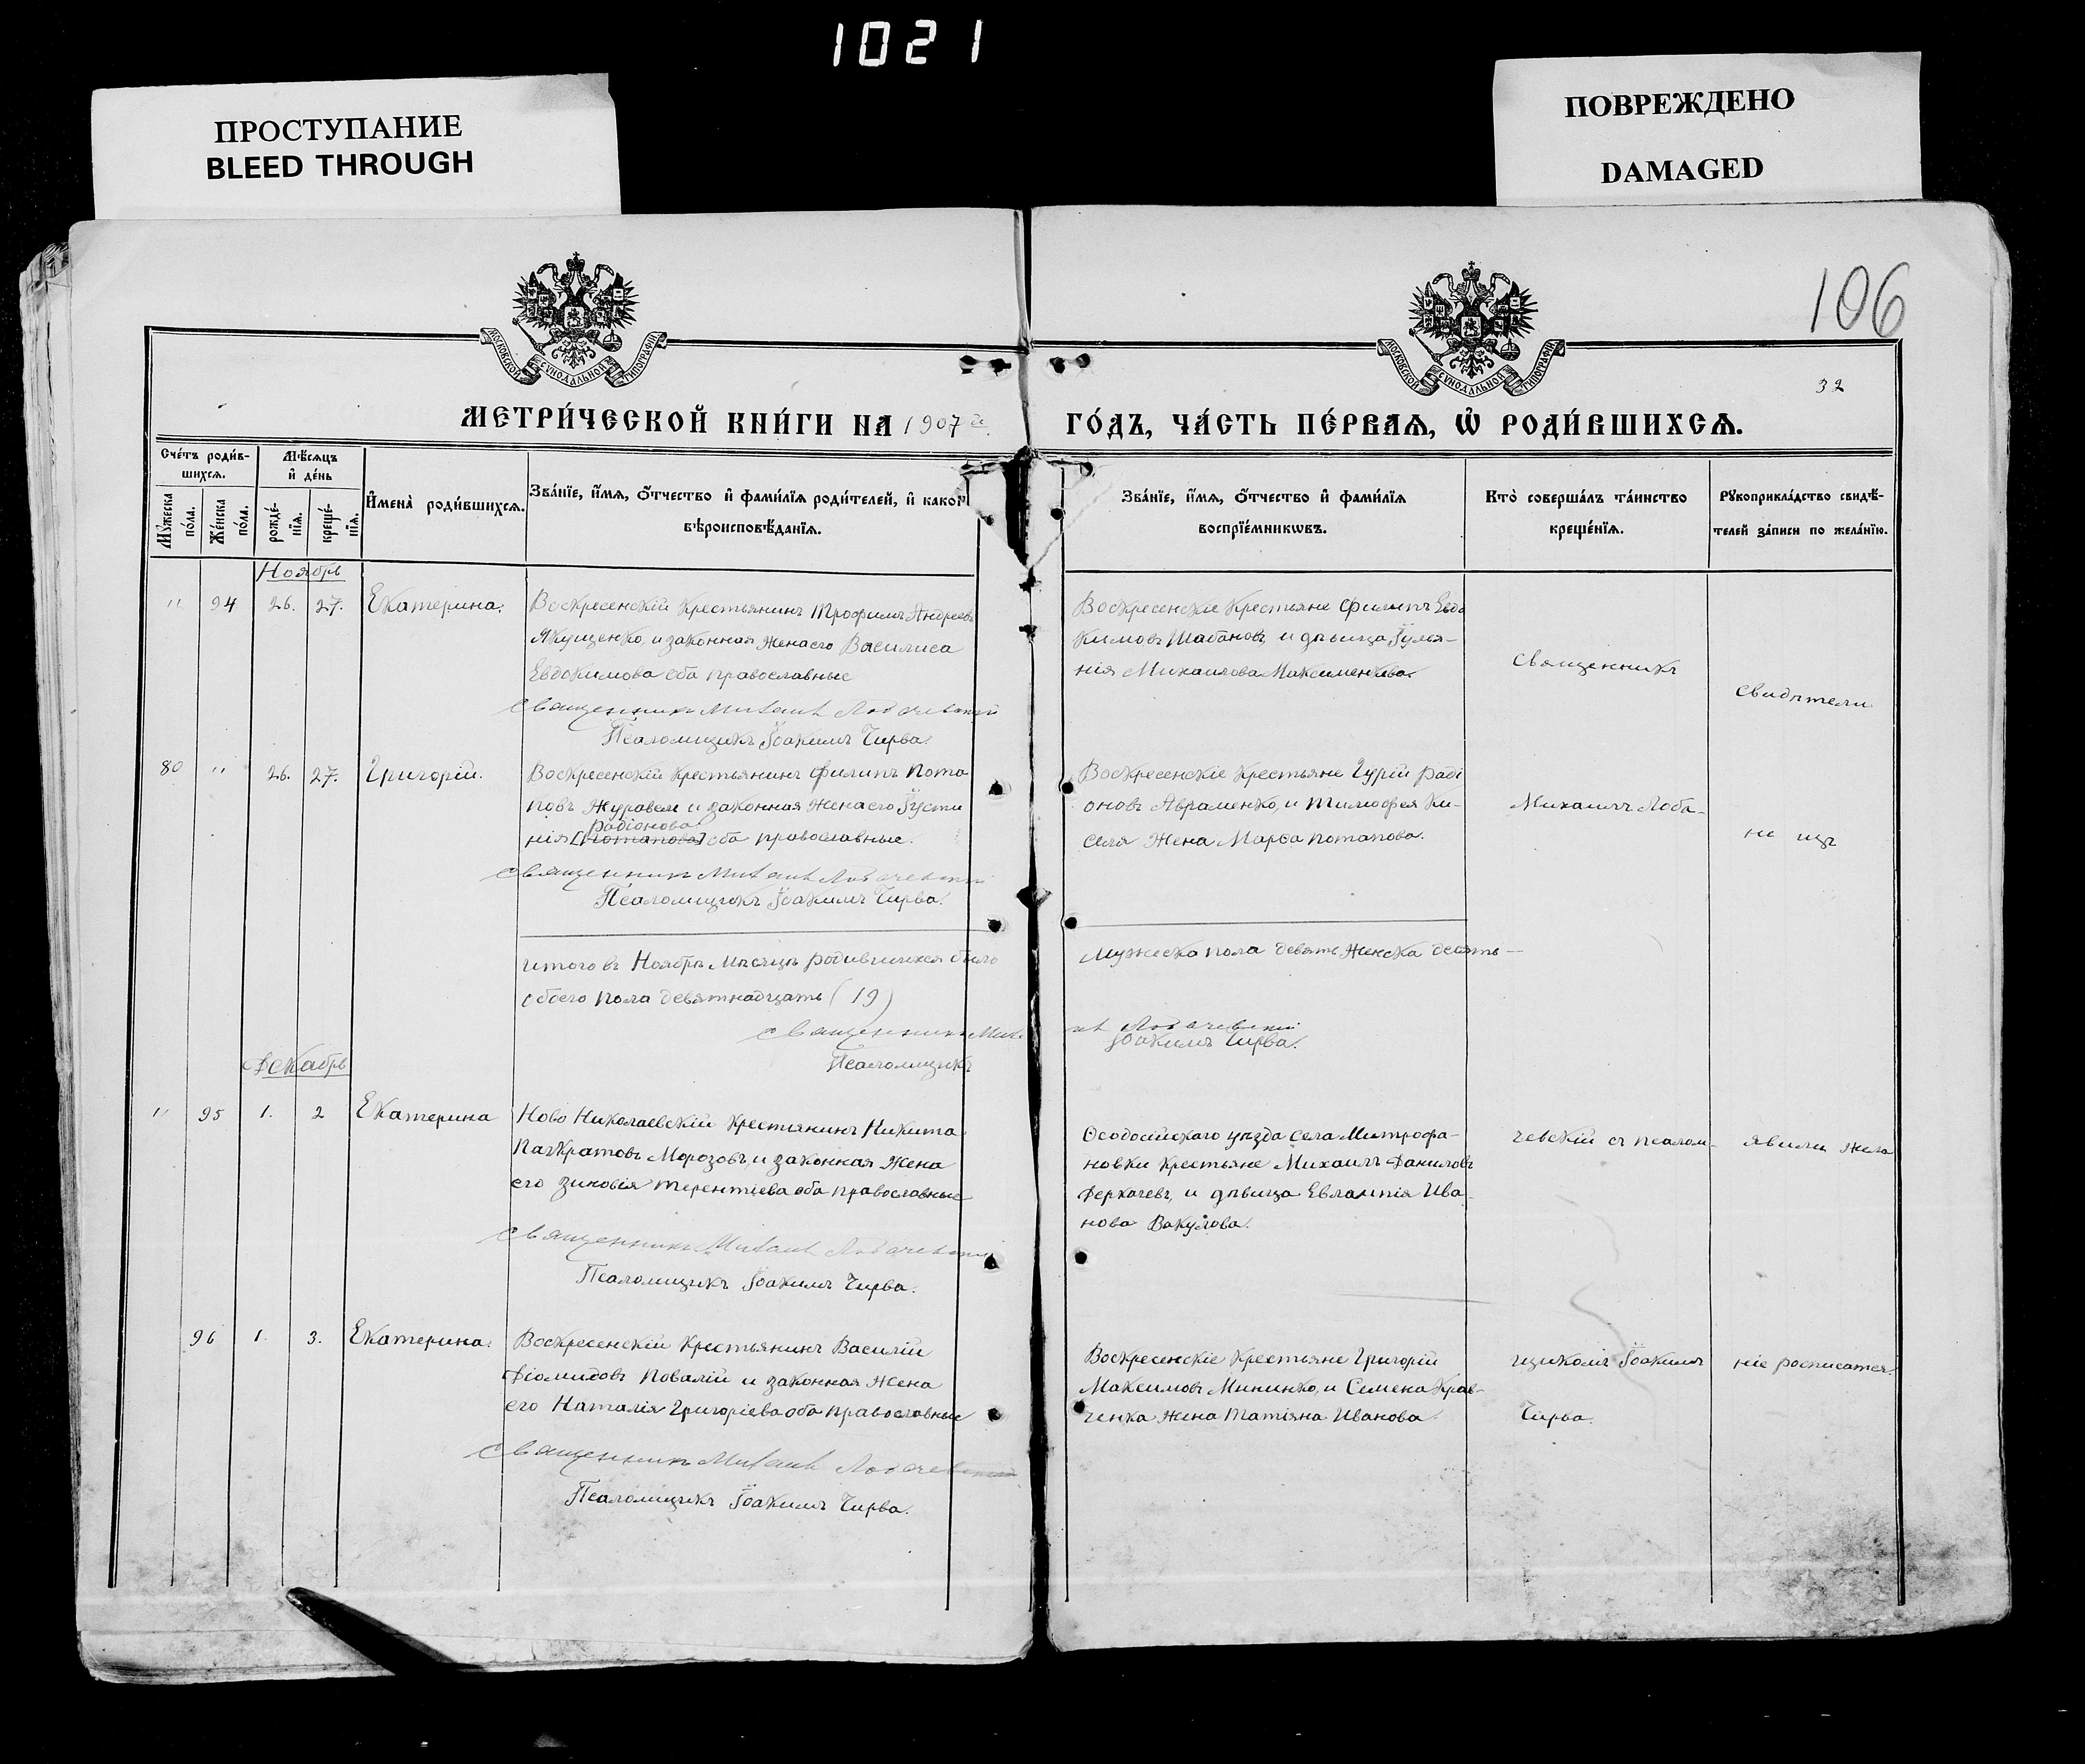 1021
ПРОСТУПАНИЕ
BLEED THROUGH
ПОВРЕЖДЕНО
DAMAGED
106
32
МОСКОВСКОЙ СѴНОДАЛЬНОЙ ТИПОГРАФІИ
МОСКОВСКОЙ СѴНОДАЛЬНОЙ ТИПОГРАФІИ
МЕТРИ́ЧЕСКОЙ КНИ́ГИ НА 1907 й
ГО́ДЪ, ЧА́СТЬ ПЕ́РВАѦ, Ѡ҆ РОДИ́ВШИХСѦ.
Сче́тъ роди́в-
шихсѧ.
Мѣ́сѧцъ
и҆ де́нь
Мꙋ́жеска по́ла.
Же́нска по́ла.
рожде́-
нїѧ.
креще́-
нїѧ.
И҆мена̀ роди́вшихсѧ.
Зва́нїе, и҆́мѧ, ѻ҆́тчество и҆ фами́лїѧ роди́телей, и҆ како́й
вѣроисповѣ́данїѧ.
Зва́нїе, и҆́мѧ, ѻ҆́тчество и҆ фами́лїѧ
воспрїе́мникѡвъ.
Кто̀ соверша́лъ та́инство
креще́нїѧ.
Рꙋкоприкла́дство свидѣ́-
телей за́писи по жела́нїю.
Ноябрь
" 94 26. 27. Екатерина.
Воскресенскій крестьянинъ Трофимъ Андреевъ
Якущенко, и законная жена его Василиса
Евдокимова оба православные
Священникъ Михаилъ Лобачевскій
Псаломщикъ Іоакимъ Чирва.
Воскресенскіе крестьяне Филипъ Евдо
кимовъ Шабановъ, и дѣвица Іулья-
нія Михаилова Максименкова.
80 " 26. 27. Григорій.
Воскресенскій крестьянинъ Филипъ Пота
повъ Журавель и законная жена его Іусти
Радіонова
нія [Потапова] оба православные.
Священникъ Михаилъ Лобачевскій
Псаломщикъ Іоакимъ Чирва.
Воскресенскіе крестьяне Гурій Раді
оновъ Авраменко, и Тимофея Ки-
селя жена Марѳа Потапова.
Итого въ Ноябрѣ мѣсяцѣ родившихся было
обоего пола девятнадцать (19)
Священникъ Миха
Псаломщикъ
Мужеска пола девять женска десять —
илъ Лобачевскій
Іоакимъ Чирва.
Декабрь
" 95 1. 2 Екатерина
Ново Николаевскій крестьянинъ Никита
Панкратовъ Морозовъ, и законная жена
его Зиновія Терентіева оба православные
Священникъ Михаилъ Лобачевскій
Псаломщикъ Іоакимъ Чирва.
Ѳеодосійскаго уѣзда села Митрофа-
новки крестьяне Михаилъ Даниловъ
Дерхачевъ, и дѣвица Евлампія Ива-
нова Вакулова.
96 1. 3. Екатерина.
Воскресенскій крестьянинъ Василій
Діомидовъ Повалій и законная жена
его Наталія Григоріева оба православные
Священникъ Михаилъ Лобачевскій
Псаломщикъ Іоакимъ Чирва.
Воскресенскіе крестьяне Григорій
Максимовъ Мининко, и Семена Крав-
ченка жена Татіяна Иванова
Священникъ
Михаилъ Лоба-
чевскій съ псалом-
щикомъ Іоакимъ
Чирва.
Свидѣтели
не изъ
явили жела
ніе росписатся.